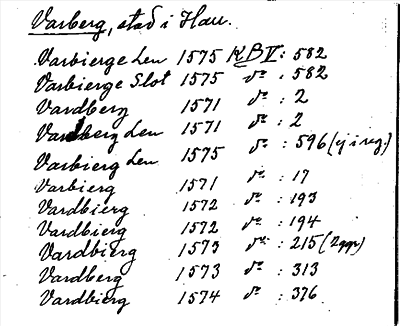 Varberg, stad i Hall.
Varbierge Len 1575 KBV: 582
Varbierge Slot 1575 do : 582
Vardberg 1571 do : 2
Vardberg Len 1571 do : 2
Varbierg Len 1575 do : 596 (ej i reg.)
Varbierg 1571 do : 17
Vardbierg 1572 do : 193
Vardbierg 1572 do : 194
Vardbierg 1573 do : 215 (2 ggr)
Vardberg 1573 do : 313
Vardbierg 1574 do : 376